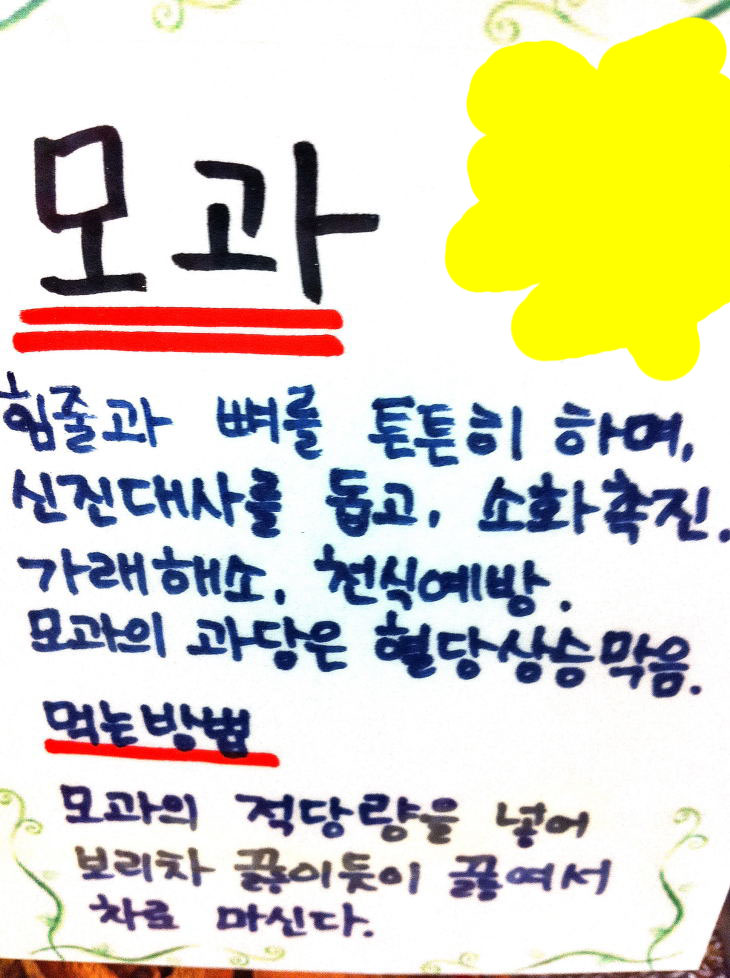 모과
힘줄과 뼈를 튼튼히 하며,
신진대사를 돕고, 소화촉진.
가래해소, 천식예방.
모과의 과당은 혈당상승막음.
먹는방법
모과의 적당량을 넣어
보리차 끓이듯이 끓여서
차로 마신다.